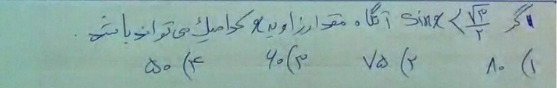 اگر sinx < √۳/۲ آنگاه مقدار زاویه x کدامیک می تواند باشد.
۱) ۸۰ ۲) ۷۵ ۳) ۶۰ ۴) ۵۰